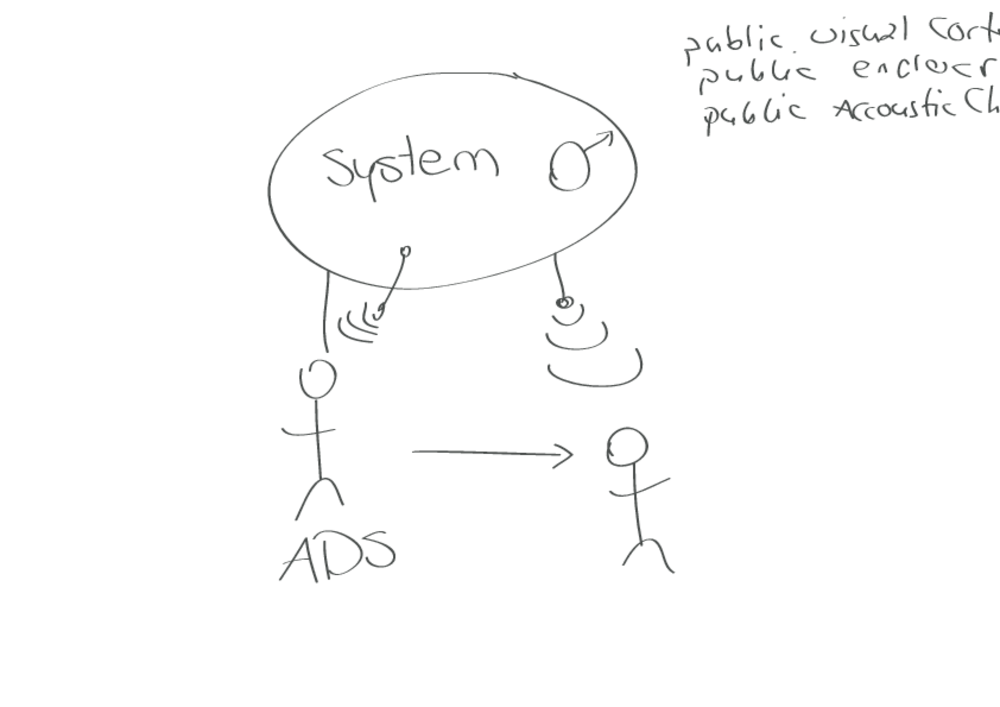 public visual Cort
public
public AccousticCh
System
ADS